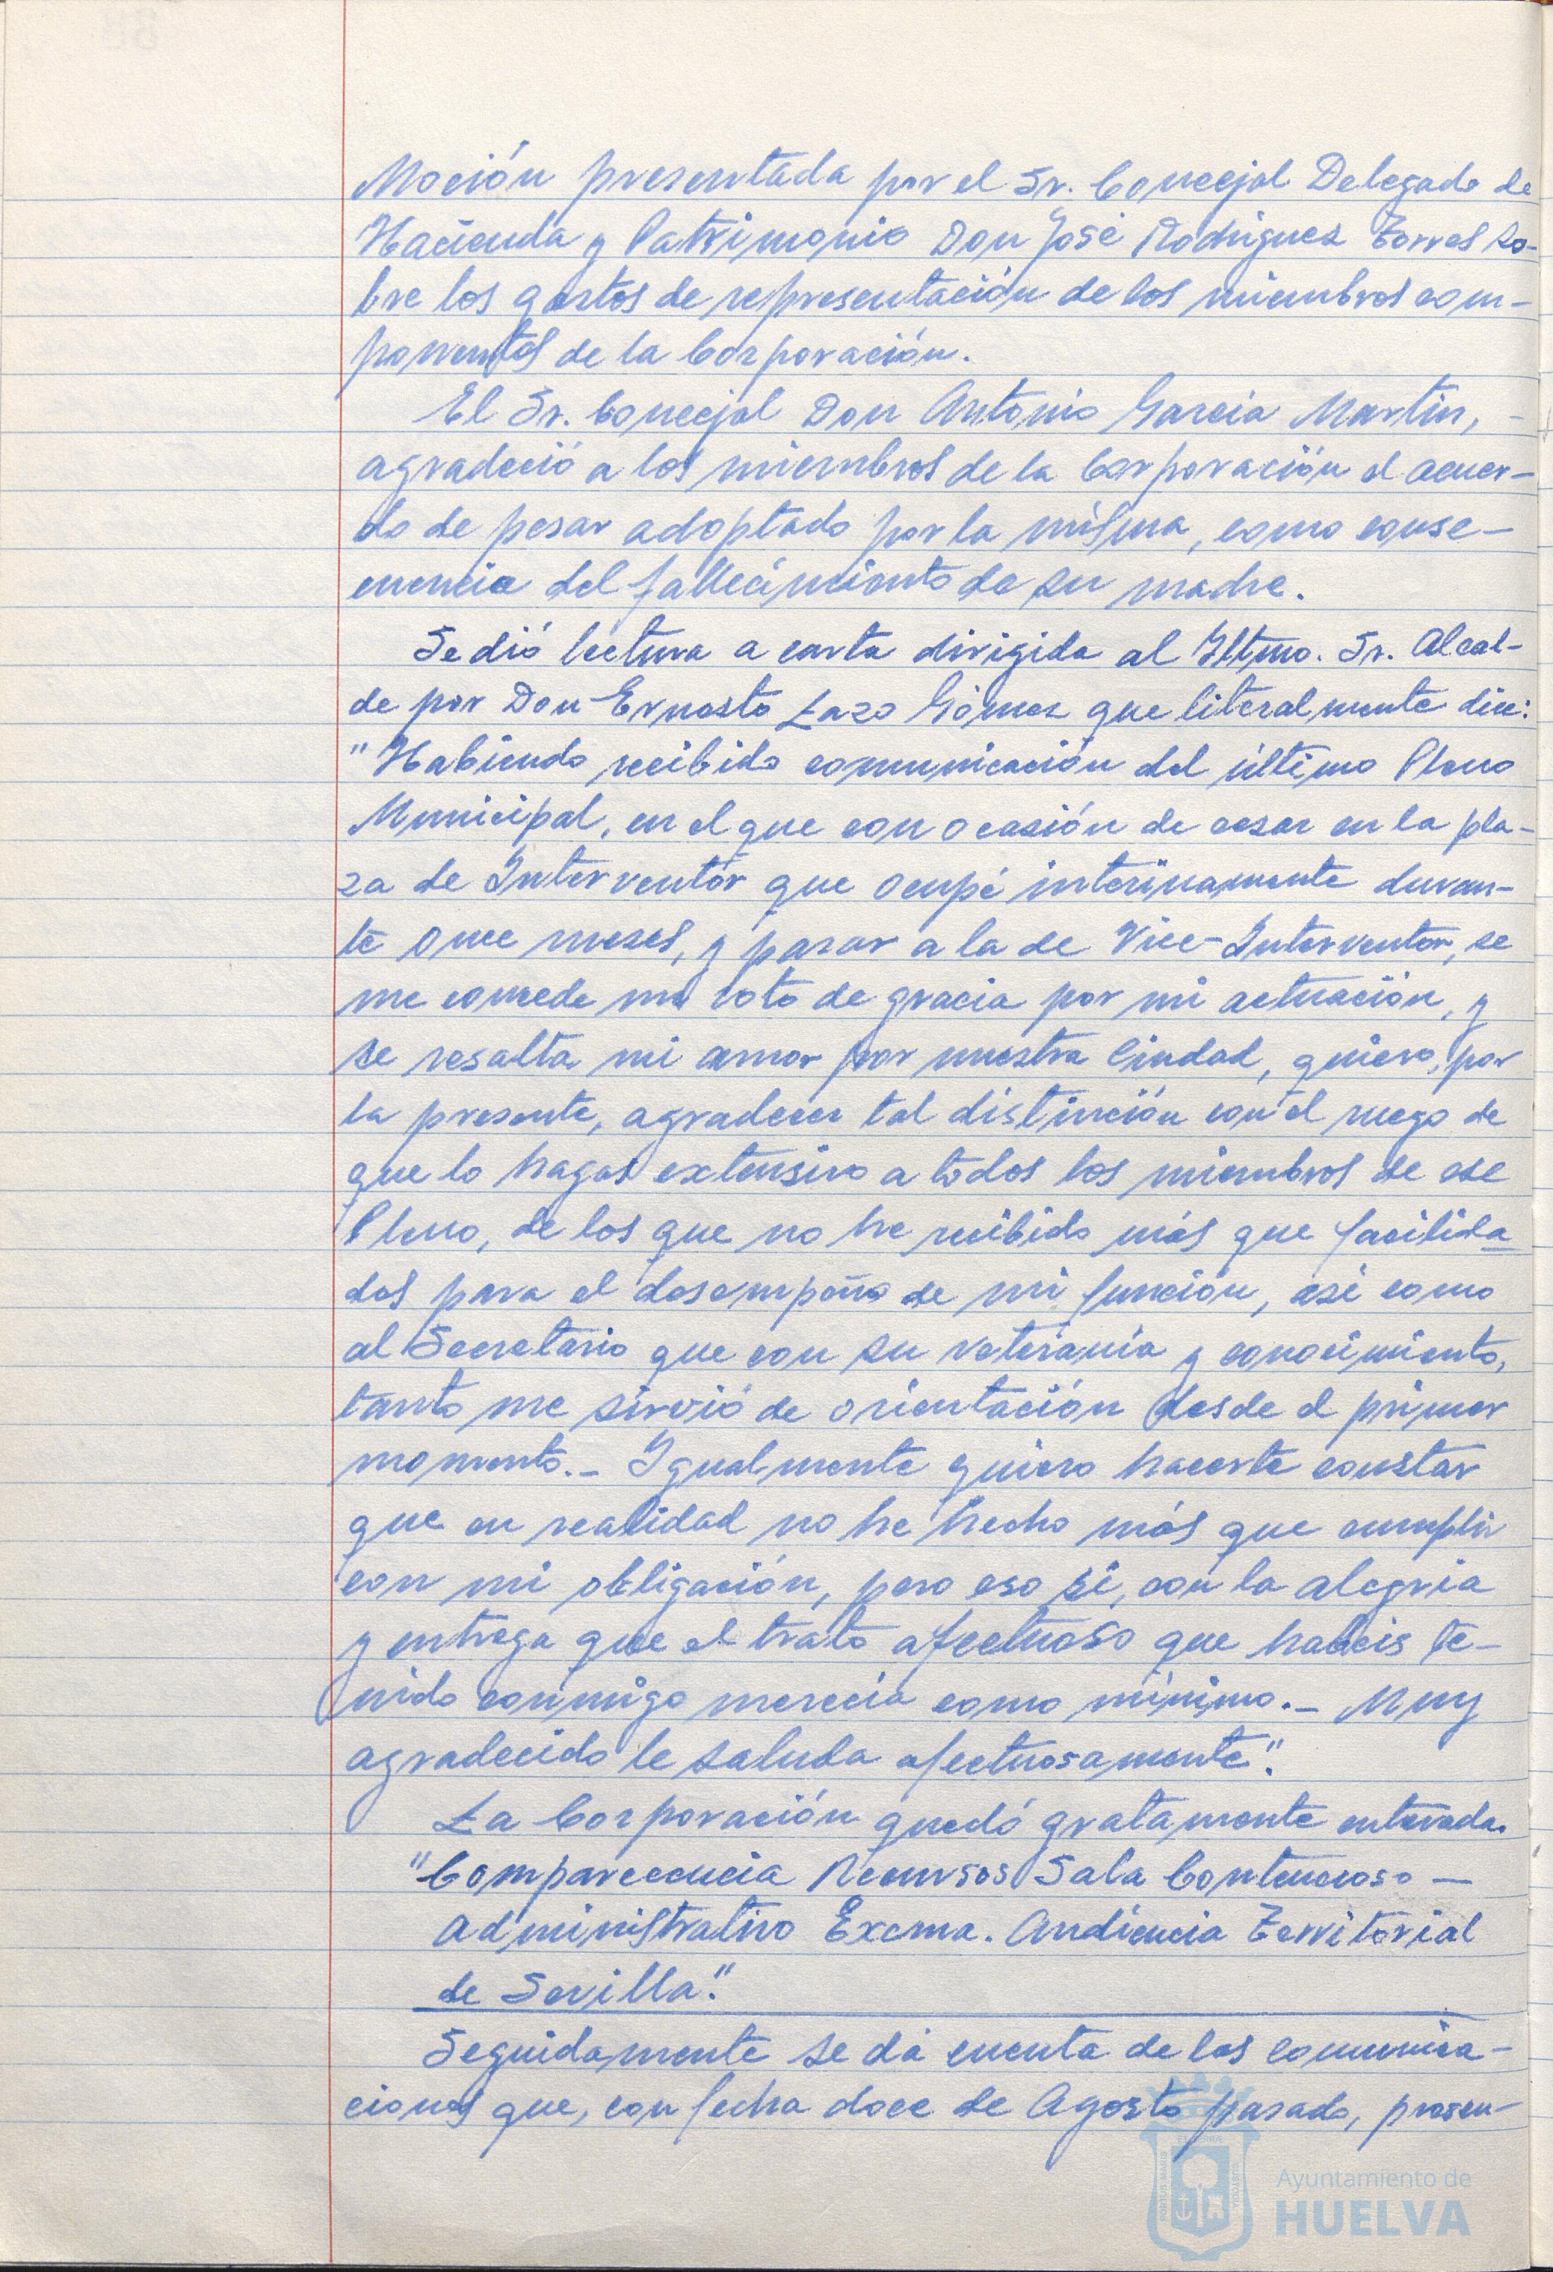 Moción presentada por el Sr. Concejal Delegado de
Hacienda y Patrimonio Don José Rodriguez Torres so-
bre los gastos de representación de los miembros com-
ponentes de la Corporación.
El Sr. Concejal Don Antonio Garcia Martin, -
agradeció a los miembros de la Corporación el acuer-
do de pesar adoptado por la misma, como conse-
cuencia del fallecimiento de su madre.
Se dió lectura a carta dirigida al Iltmo. Sr. Alcal-
de por Don Ernesto Lazo Gómez que literalmente dice:
"Habiendo recibido comunicación del último Pleno
Municipal, en el que con ocasión de cesar en la pla-
za de Interventor que ocupé interinamente duran-
te once meses, y pasar a la de Vice-Interventor, se
me concede un voto de gracia por mi actuación, y
se resalta mi amor por nuestra Ciudad, quiero, por
la presente, agradecer tal distinción con el ruego de
que lo hagas extensivo a todos los miembros de ese
Pleno, de los que no he recibido más que facilida
des para el desempeño de mi función, asi como
al Secretario que con su veterania y conocimiento,
tanto me sirvió de orientación desde el primer
momento.- Igualmente quiero hacerte constar
que en realidad no he hecho más que cumplir
con mi obligación, pero eso si, con la alegria
y entrega que el trato afectuoso que habeis te-
nido conmigo merecia como minimo.- Muy
agradecido le saluda afectuosamente".
La Corporación quedó gratamente enterada.
"Comparecencia Recursos Sala Contencioso -
Administrativo Excma. Audiencia Territorial
de Sevilla."
Seguidamente se dá cuenta de las comunica-
ciones que, con fecha doce de Agosto pasado, presen-
Ayuntamiento de
HUELVA